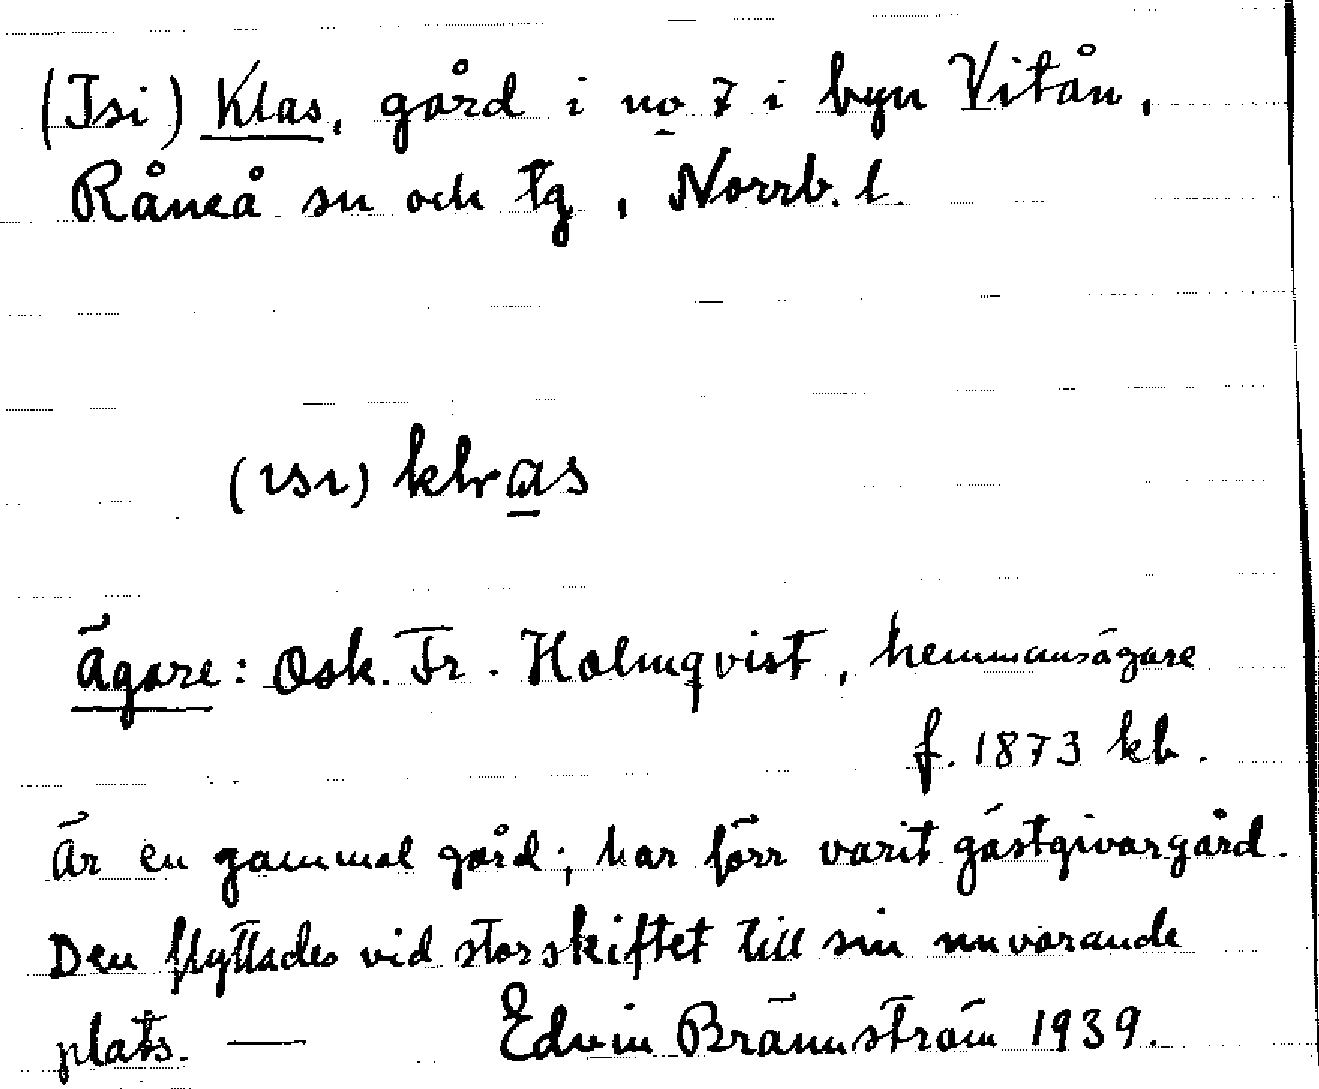 (Isi) Klas, gård i no 7 i byn Vitån,
Råneå sn och tg, Norrb. l.
(ısı) klɑs
Ägare: Osk. Fr. Holmqvist, hemmansägare
f. 1873 kb.
Är en gammal gård; har förr varit gästgivargård.
Den flyttades vid storskiftet till sin nuvarande
plats. — Edvin Brännström 1939.